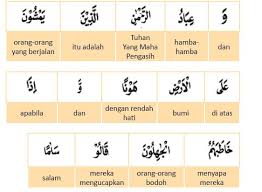 وَ عِبَادُ الرَّحْمٰنِ الَّذِيْنَ يَمْشُوْنَ
orang-orang yang berjalan itu adalah Tuhan Yang Maha Pengasih hamba-hamba dan
عَلَى الْاَرْضِ هَوْنًا وَّ اِذَا
apabila dan dengan rendah hati bumi di atas
خَاطَبَهُمُ الْجٰهِلُوْنَ قَالُوْا سَلٰمًا
salam mereka mengucapkan orang-orang bodoh menyapa mereka